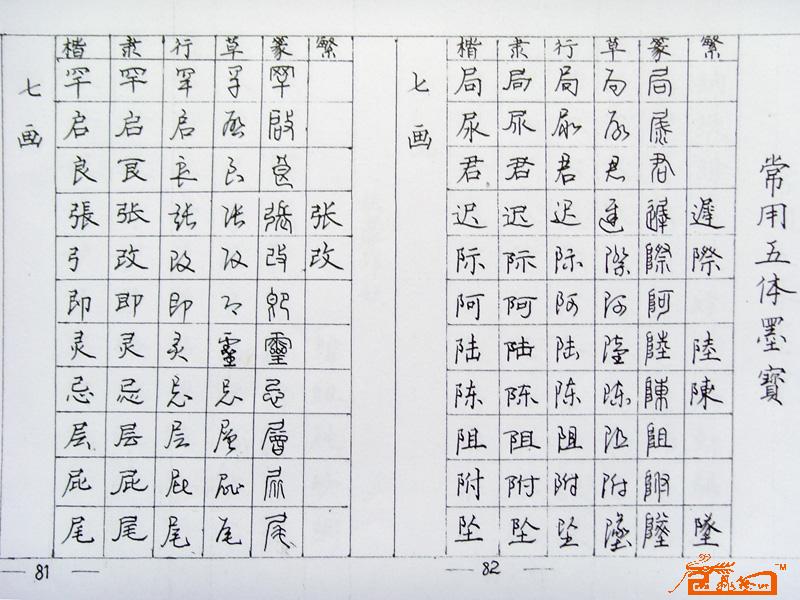 常用五体墨寶
七画
楷 隶 行 草 篆 繁
局 局 局 局 局
尿 尿 尿 尿 尿
君 君 君 君 君
迟 迟 迟 遲 遲 遲
际 际 际 際 際 際
阿 阿 阿 阿 阿
陆 陆 陆 陸 陸 陸
陈 陈 陈 陈 陳 陳
阻 阻 阻 阻 阻
附 附 附 附 附
坠 坠 坠 墜 墜 墜
82
七画
楷 隶 行 草 篆 繁
罕 罕 罕 罕 罕
启 启 启 啟 啟
良 良 良 良 良
張 张 張 张 張 张
弓 改 改 改 改 改
即 即 即 即 即
灵 灵 灵 靈 靈
忌 忌 忌 忌 忌
层 层 层 層 層
屁 屁 屁 屁
尾 尾 尾 尾 尾
81
TM